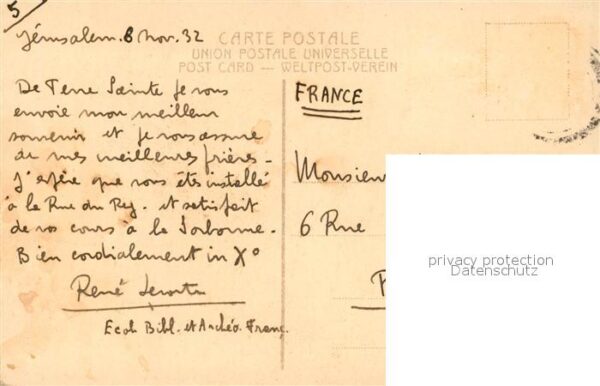 5
Jérusalem. 8 Nov. 32
CARTE POSTALE
UNION POSTALE UNIVERSELLE
POST CARD — WELTPOST-VEREIN
De Terre Sainte je vous
envoie mon meilleur
souvenir et je vous assure
de mes meilleures prières -
J'espère que vous êtes installé
à la Rue du Rey. et satisfait
de vos cours à la Sorbonne.
Bien cordialement in X°
René
Ecole Bibl. et Archéo. Franç.
FRANCE
Monsieur
6 Rue
privacy protection
Datenschutz